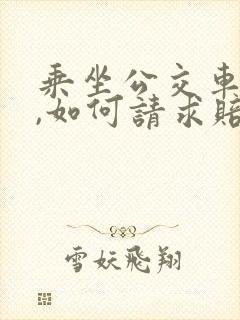 乘坐公交車
,如何請求賠
雪妖飛翔